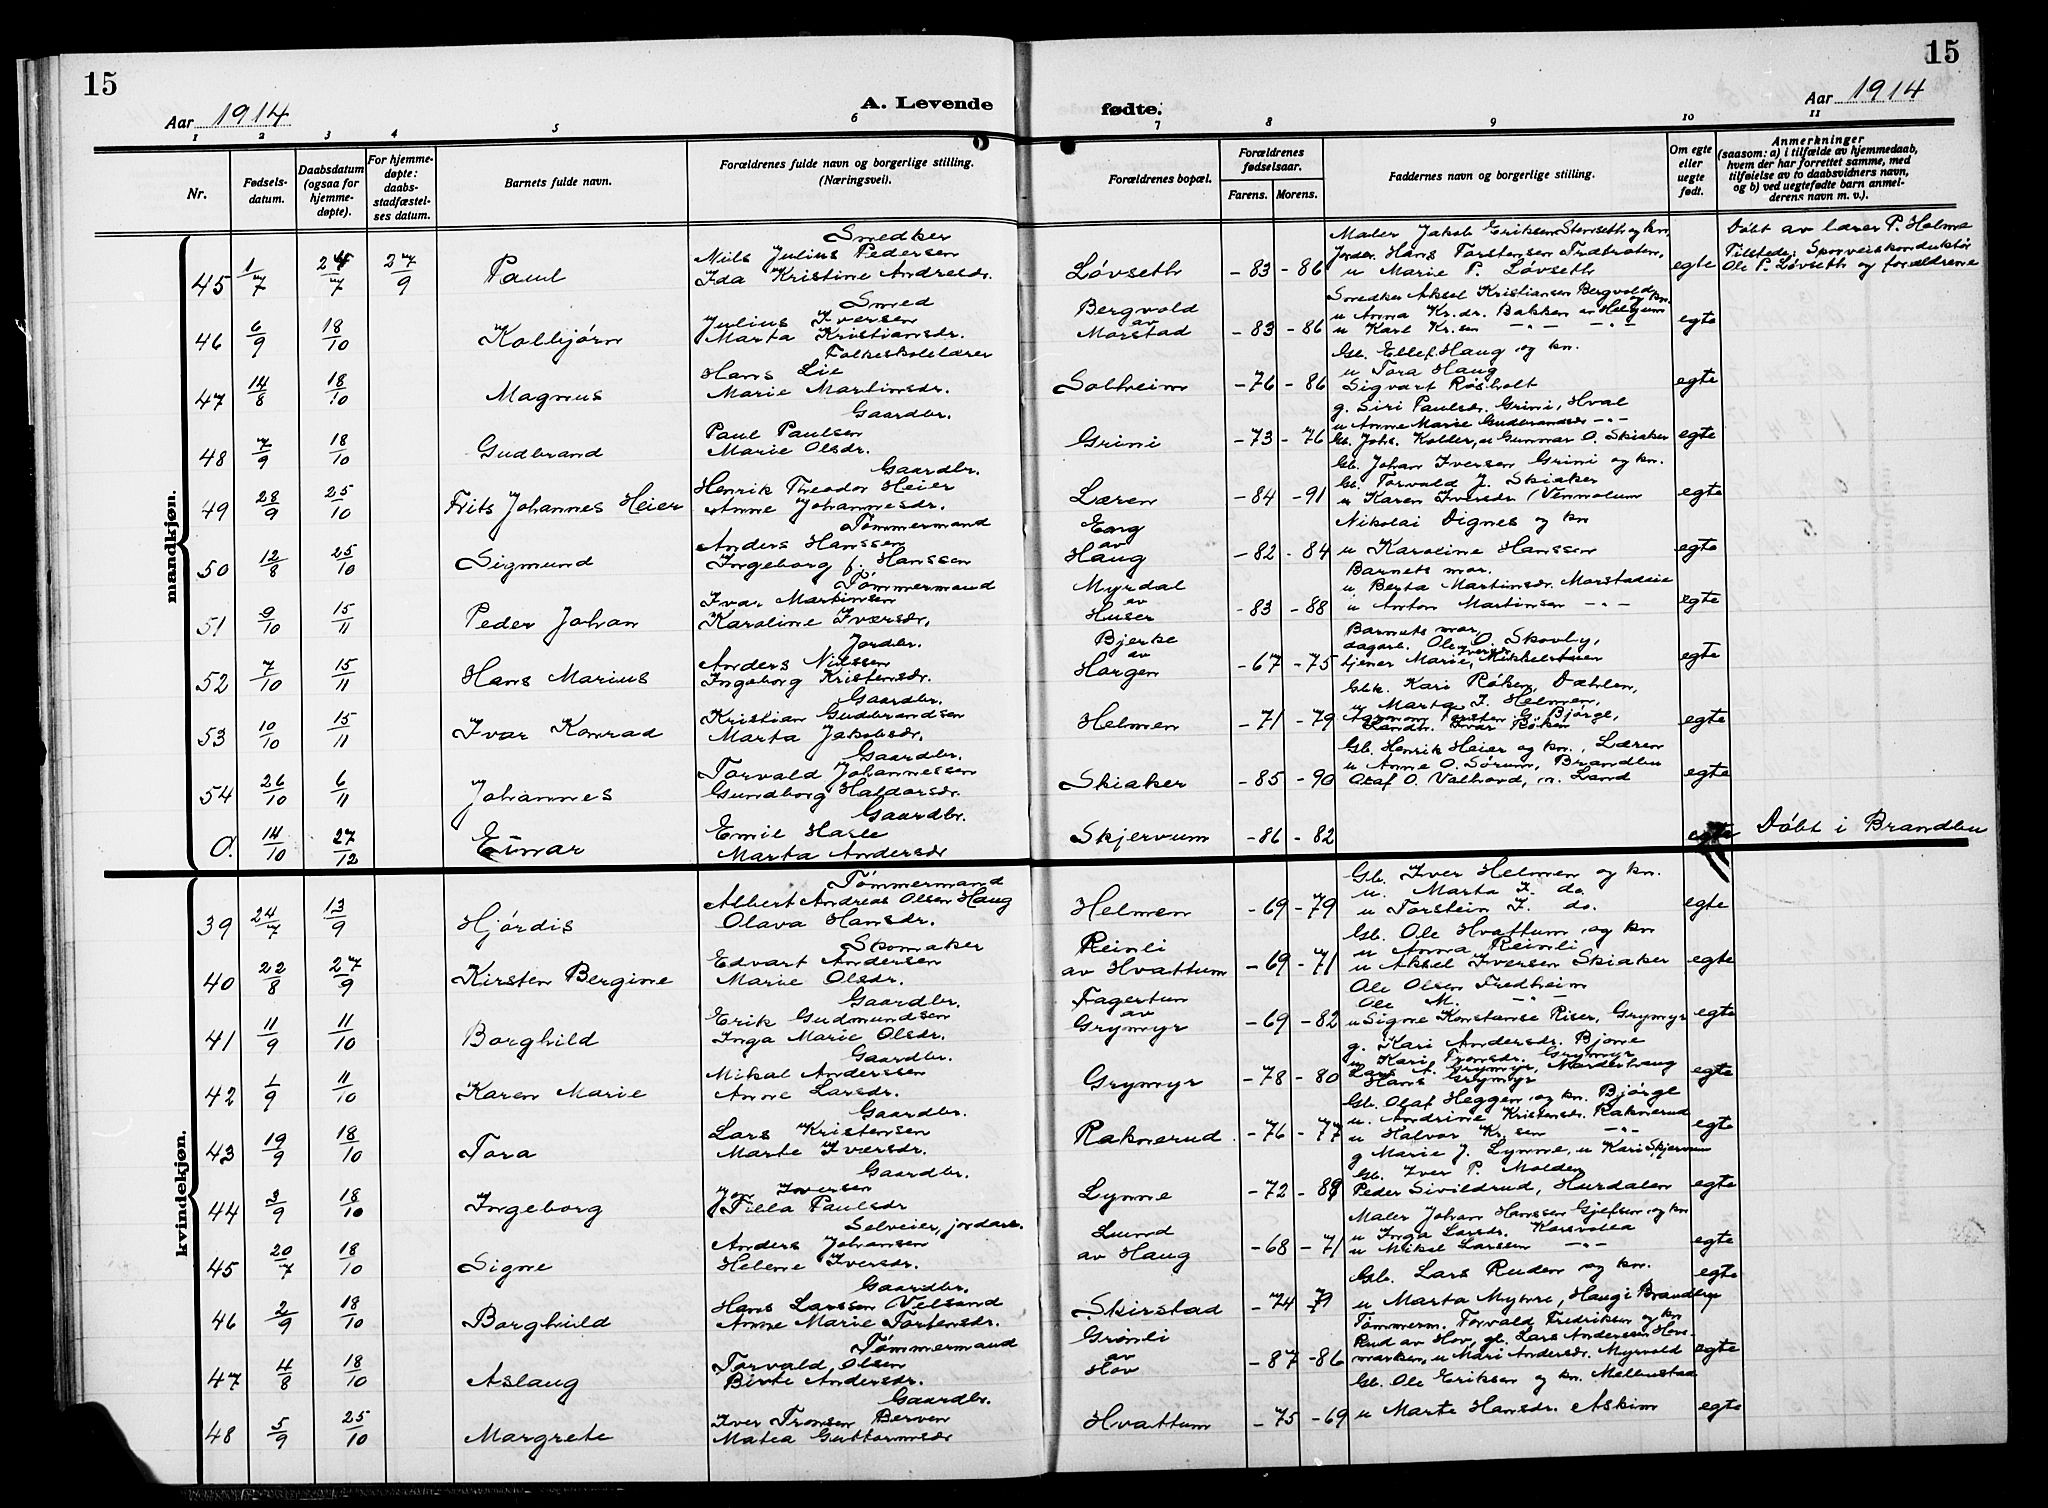 15
15
Aar 1914
A. Levende
fødte.
Aar 1914
1 2 3 4 5 6 7 8 9 10 11
Nr.
Fødsels-
datum.
Daabsdatum
(ogsaa for
hjemme-
døpte).
For hjemme-
døpte:
daabs-
stadfæstel-
ses datum.
Barnets fulde navn.
Forældrenes fulde navn og borgerlige stilling.
(Næringsvei).
Forældrenes bopæl.
Forældrenes
fødselsaar.
Farens. Morens.
Faddernes navn og borgerlige stilling.
Om egte
eller
uegte
født.
Anmerkninger
(saasom: a) i tilfælde av hjemmedaab,
hvem der har forrettet samme, med
tilføielse av to daabsvidners navn,
og b) ved uegtefødte barn anmel-
derens navn m. v.).
mandkjøn.
Smedker
45 1/7 2/7 27/9 Paul
Nils Julius Pedersen
Ida Kristine Andresdr.
Løvseth -83 -86
Maler Jakob Eriksen Stenseth og kn,
Jorder. Hans Torstensen
u Marie P. Løvseth
egte
Døbt av lærer P. Helme
Tilstede: Sporveiskonduktør
Ole P. Løvseth og forældrene
Smed
46 6/9 18/10 Kolbjørn
Julius Iversen
Marta Kristiansdr.
Bergvold
av
Morstad -83 -86
Smedker Aksel Kristiansen Bergvold og kn.
u Anna Kr.dr. Bakken av Helgum
u Karl Kr.sen -"- -"-
egte
Folkeskolelærer
47 14/8 18/10 Magnus
Hans Lie
Marie Martinsdr.
Solheim -76 -86
Gb. Ellef Haug og kn.
u Tora Haug
Sigvart Røsholt
egte
Gaardbr.
48 7/9 18/10 Gudbrand
Paul Paulsen
Marie Olsdr.
Grini -73 -76
g. Siri Paulsdr. Grini, Hval
u Anne Marie Gudbrandsdr -"-
Gb. Johs. Koller, u Gunnar O. Skiaker
egte
Gaardbr.
49 28/9 25/10 Frits Johannes Heier
Henrik Theodor Heier
Anne Johannesdr.
Læren -84 -91
Gb. Johan Iversen Grini og kn.
Gb. Torvald J. Skiaker
u Karen Iversdr Vennolum
egte
Tømmermand
50 12/8 25/10 Sigmund
Anders Hanssen
Ingeborg f. Hanssen
Eng
av
Haug -82 -84
Nikolai Vignes og kn
u Karoline Hanssen
egte
Tømmermand
51 9/10 15/11 Peder Johan
Ivar Martinsen
Karoline Iversdr.
Myrdal
av
Huser -83 -88
Barnets mor.
u Berta Martinsdr. Morstadeie
u Anton Martinsen -"-
egte
Jordbr.
52 7/10 15/11 Hans Marius
Anders Nilssen
Ingeborg Kristensdr.
Bjerke
av
Horgen -67 -75
Barnets mor,
dagarb. Ole O. Skovly,
tjener Marie Iversdr. Mikkelstuen
egte
Gaardbr.
53 10/10 15/11 Ivar Konrad
Kristian Gudbrandsen
Marta Jakobsdr.
Helmen -71 -79
Gbk. Kari Røken, Dæhlen,
u Marta I. Helmen,
Agronom Torsten G. Bjørge,
Landm. Ivar Røken
egte
Gaardbr.
54 26/10 6/11 Johannes
Torvald Johannessen
Gundborg Haldorsdr.
Skiaker -85 -90
Gb. Henrik Heier og kn., Læren
u Anne O. Sørum, Brandbu
Olaf O. Valhovd, n. Land
egte
Gaardbr.
O. 14/10 27/12 Einar
Emil Hasle
Marta Andersdr
Skjervum -86 -82
egte
Døbt i Brandbu
kvindekjøn.
Tømmermand
39 24/7 13/9 Hjørdis
Albert Andreas Olsen Haug
Olava Hansdr.
Helmen -69 -79
Gb. Iver Helmen og kn.
u. Marta I. do.
u Torstein I. do.
egte
Skomaker
40 22/8 27/9 Kirsten Bergine
Edvart Andersen
Marie Olsdr.
Reinli
av Hvattum -69 -71
Gb. Ole Hvattum og kn
u Anna Reinli
u Aksel Iversen Skiaker
egte
Gaardbr.
41 11/9 11/10 Borghild
Erik Gudmundsen
Inga Marie Olsdr.
Fagertun
av
Grymyr -69 -82
Ole Olsen Fredheim
Ole M. -"-
u Signe Konstanse Riser, Grymyr
egte
Gaardbr.
42 1/9 11/10 Karen Marie
Mikal Anderssen
Anne Larsdr.
Grymyr -78 -80
g. Kari Andersdr. Bjone
u Kari Tronsdr. Grymyr
Lars A. Grymyr, Marderhaug
Hans Grymyr
egte
Gaardbr.
43 19/9 18/10 Tora
Lars Kristensen
Marte Iversdr.
Raknerud. -76 -77
Gb. Olaf Heggen og kn. Bjørge
u. Andrine Kristensdr. Raknerud
u Halvor Kr.sen -"-
egte
Gaardbr.
44 3/9 18/10 Ingeborg
Jon Iversen
Tilla Paulsdr
Lynne -72 -88
g Marie J. Lynne, u Kari Skjervum
Gb. Iver P. Molden
Peder Sivildrud, Hurdalen
egte
Selveier, jordarb.
45 20/7 18/10 Signe
Anders Johansen
Helene Iversdr.
Lund
av Haug -68 -71
Maler Johan Hanssen Gjefsen og kn
u Inga Larsdr. Korsvolea
u Mikal Larsen -"-
egte
Gaardbr.
46 2/9 18/10 Borghild
Hans Larssen Velsand
Anne Marie Torstensdr.
Skirstad -74 -79
Gb. Lars Ruden og kn.
u Marta Myhre, Haug i Brandbu
egte
Tømmermand
47 4/8 18/10 Aslaug
Torvald Olsen
Birte Andersdr.
Grønli
av
Hov -87 -86
Tømmerm. Torvald Fredriksen og kn
Rud av Hov, gb. Lars Anderssen Hovs-
marken, u Mari Andersdr. Myrvold
egte
Gaardbr.
48 5/9 25/10 Margrete
Iver Tronsen Berven
Matea Guttormsdr
Hvattum -75 -69
Gb. Ole Eriksen og kn. Mellustad
u Marte Hansdr. Askim
egte